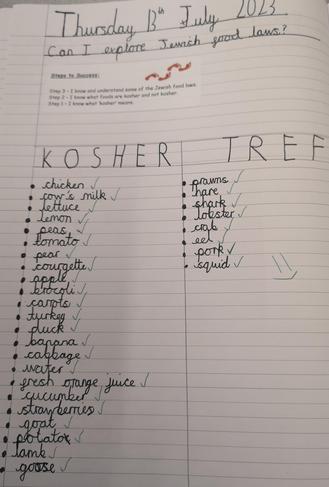 Thursday 13th July 2023
Can I explore Jewish food laws?
Steps to Success:
Step 3 - I know and understand some of the Jewish food laws.
Step 2 - I know what foods are kosher and not kosher.
Step 1 - I know what 'kosher' means.
KOSHER
chicken
cow's milk
lettuce
lemon
peas
tomato
pear
courgette
apple
brocoli
carots
turkey
pluck
banana
cabbage
water
fresh orange juice
cucumber
strawberries
goat
potatoe
lamb
goose
TREF
prawns
hare
shark
lobster
crab
eel
pork
squid